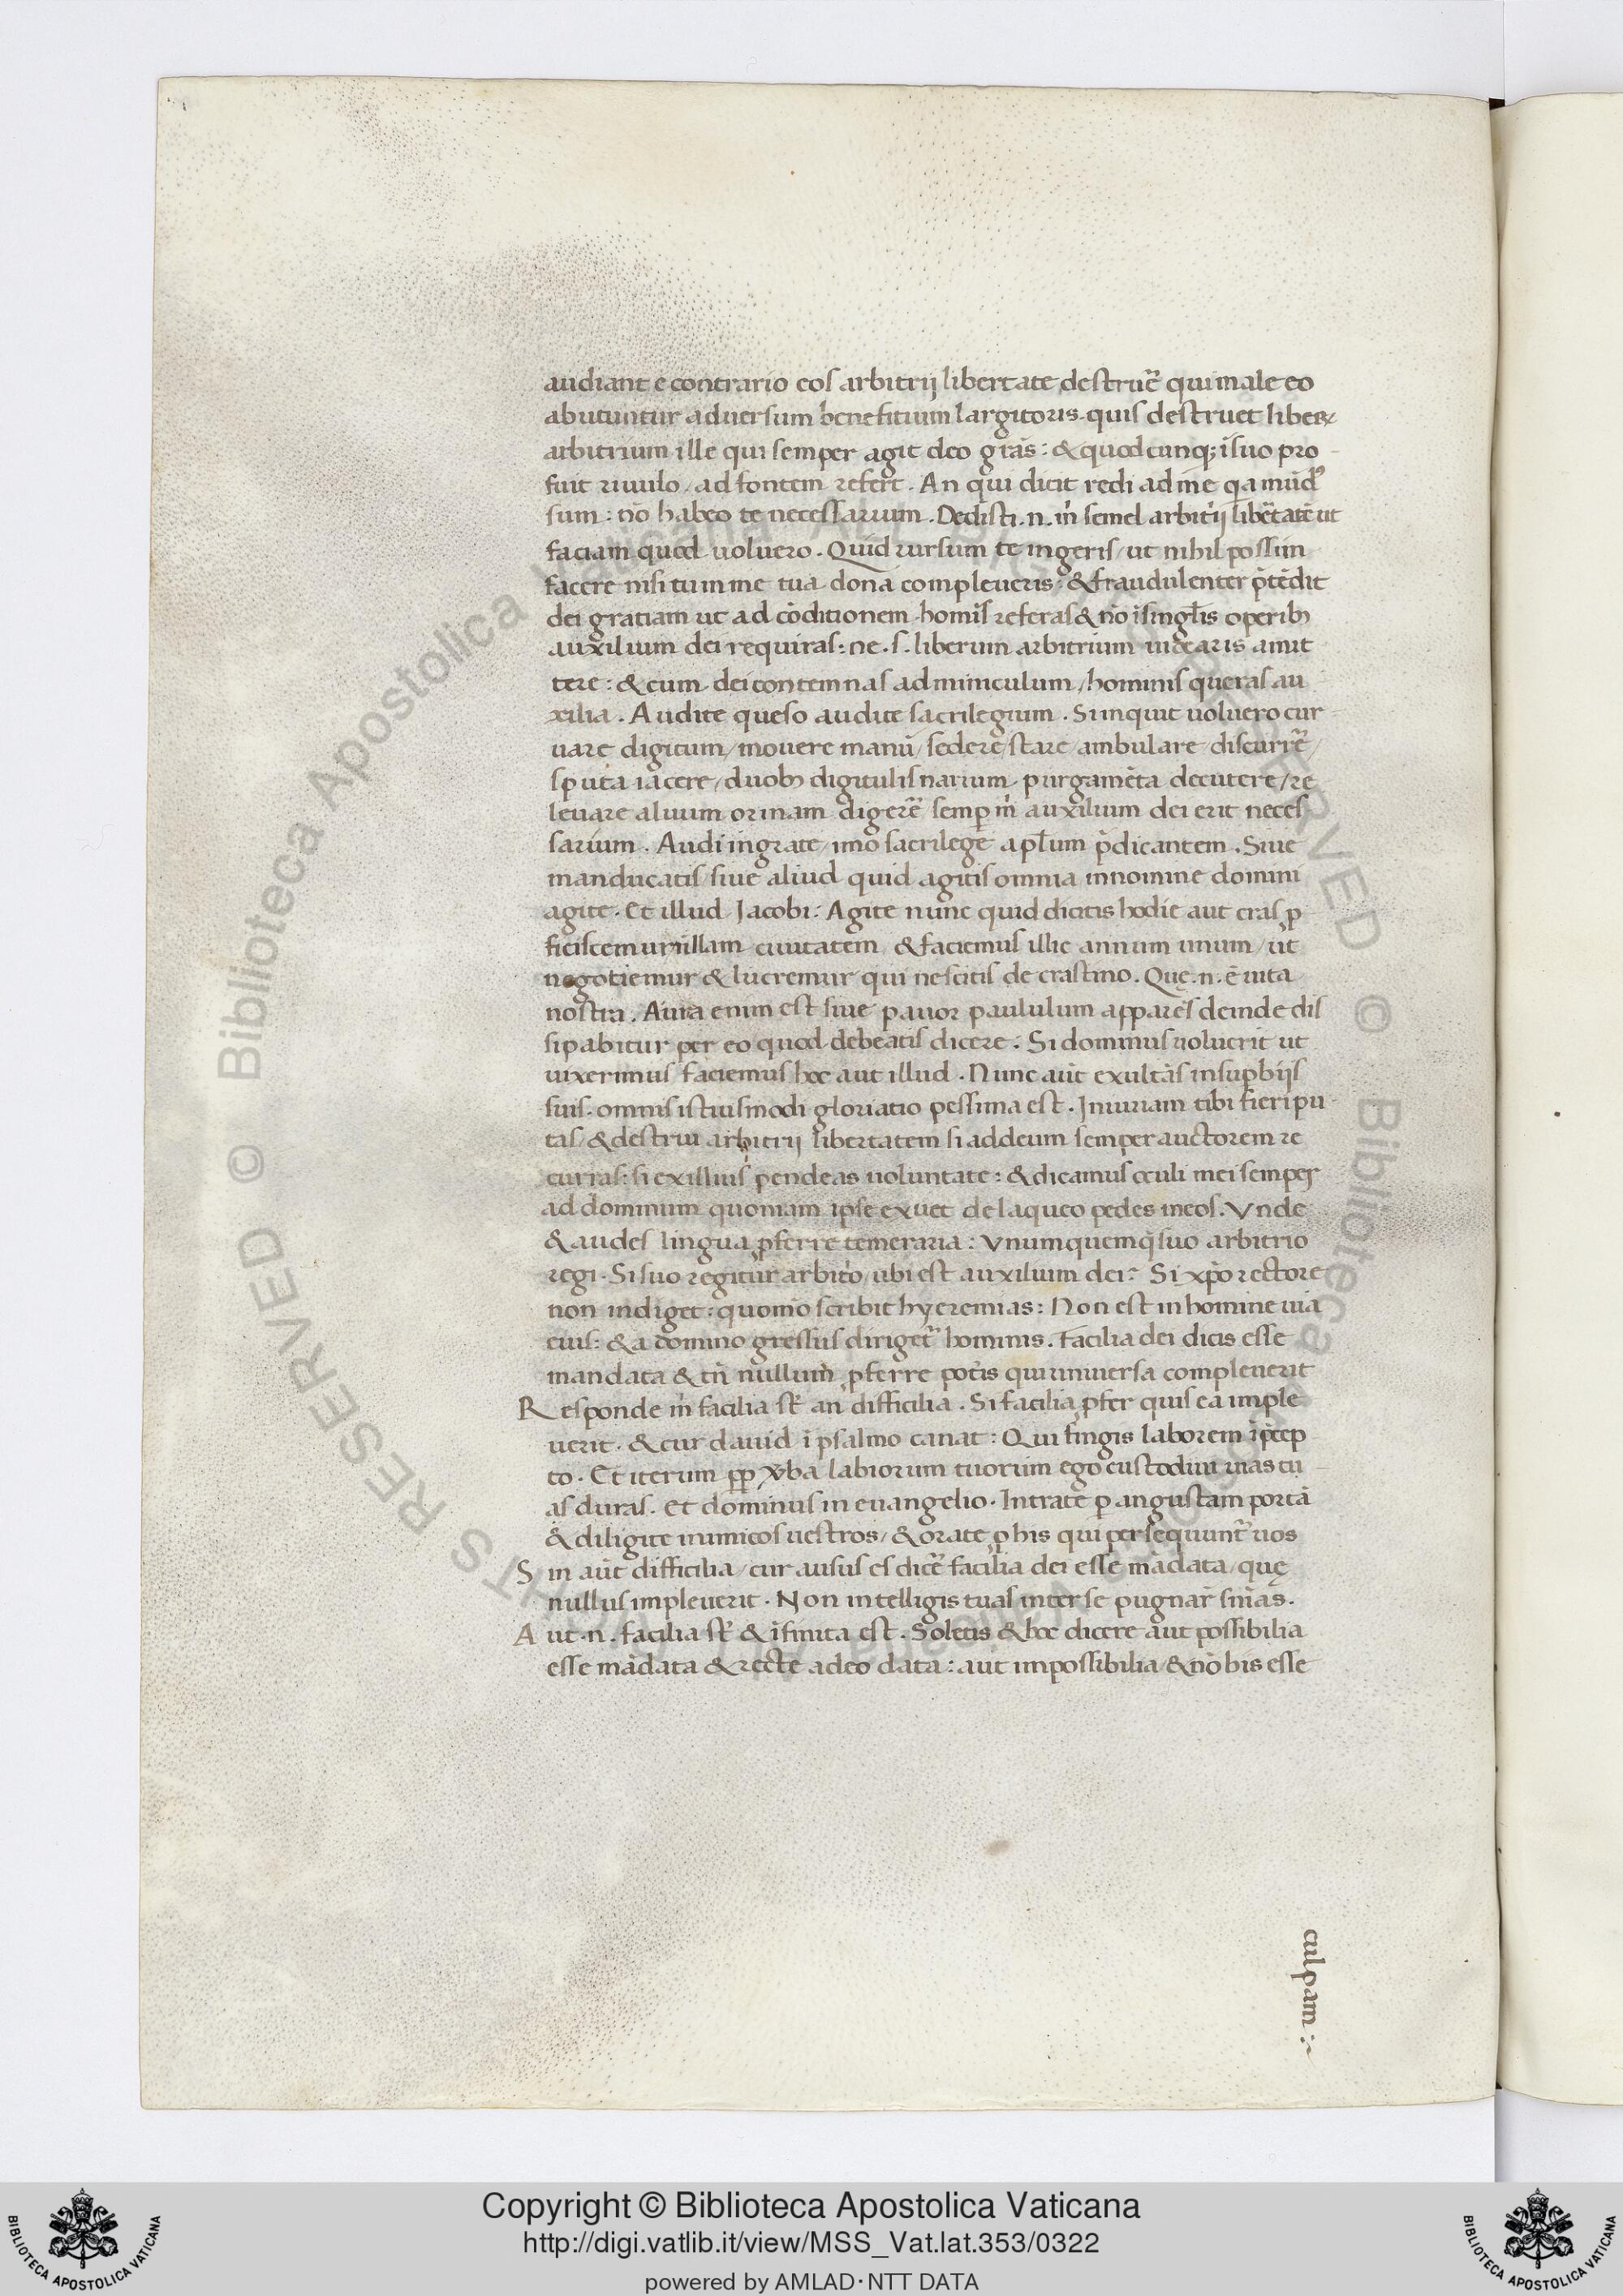 audiant e contrario eos arbitrij libertate destruẽ qui male eo
abutuntur aduersum benefitium largitoris. quis destruet liberꝝ
arbitrium ille qui semper agit deo grãs: & quodcunq; ĩ suo pro
fuit riuulo / ad fontem refert. An qui dicit redi ad me qa mũdꝰ
sum: nõ habeo te necessarium. Dedisti .n. m̃ semel arbitrij libẽtatẽ ut
faciam quod uoluero. Quid rursum te ingeris / ut nihil possim
facere nisi tu in me tua dona compleueris: & fraudulenter p̃tẽdit
dei gratiam ut ad cõditionem homĩs referas & nõ ĩ singłis operibꝫ
auxilium dei requiras: ne .s. liberum arbitrium uidearis amit
tere: & cum dei contemnas adminiculum / hominis queras au
xilia. Audite queso audite sacrilegium. Si inquit uoluero cur
uare digitum / mouere manũ / sedere / stare / ambulare / discurrẽ /
sputa iacere / duobꝫ digitulis narium purgamẽta decutere / re
leuare aluum orinam digerẽ semꝑ m̃ auxilium dei erit neces
sarium. Audi ingrate / imo sacrilege apłum p̃dicantem. Siue
manducatis / siue aliud quid agitis omnia in nomine domini
agite. Et illud Jacobi: Agite nunc quid dicitis hodie aut cras ꝓ
ficiscemur in illam ciuitatem & faciemus illic annum unum / ut
negotiemur & lucremur qui nescitis de crastino. Quę .n. ẽ uita
nostra. Aura enim est siue pauor paululum apparẽs deinde dis
sipabitur per eo quod debeatis dicere. Si dominus uoluerit ut
uixerimus faciemus hoc aut illud. Nunc aũt exultãs in suꝑbijs
suis. omnis istiusmodi gloriatio pessima est. Iniuriam tibi fieri pu
tas / & destrui arbitrij libertatem si ad deum semper auctorem re
curras: si ex illius pendeas uoluntate: & dicamus oculi mei semper
ad dominum quoniam ipse exuet de laqueo pedes meos. Vnde
& audes lingua ꝓferre temeraria: Vnumquemq̃ suo arbitrio
regi. Si suo regitur arbit̃o / ubi est auxilium dei? Si xp̃o rectore
non indiget: quomõ scribit hyeremias: Non est in homine uia
eius: & a domino gressus dirigetᷣ hominis. Facilia dei dicis esse
mandata & tñ nullum ꝓferre potis qui uniuersa compleuerit
Responde m̃ facilia st̃ an difficilia. Si facilia ꝓfer quis ea imple
uerit. & cur dauid ĩ psalmo canat: Qui fingis laborem ĩ p̃cep
to. Et iterum ꝓp ỹba labiorum tuorum ego custodiui uias tu
as duras. et dominus in euangelio. Intrate ꝑ angustam portã
& diligite inimicos uestros / & orate ꝓ his qui persequuntᷣ uos
Sin aũt difficilia / cur ausus es dicẽ facilia dei esse mãdata / quę
nullus impleuerit. Non intelligis tuas inter se pugnar̃ sñias.
Aut .n. facilia st̃ & ĩfinita est. Soletis & hoc dicere aut possibilia
esse mãdata & recte a deo data: aut impossibilia / & nõ his esse
culpam:~
© Biblioteca Apostolica Vaticana ALL RIGHTS RESERVED
Copyright © Biblioteca Apostolica Vaticana
http://digi.vatlib.it/view/MSS_Vat.lat.353/0322
powered by AMLAD·NTT DATA
BIBLIOTECA APOSTOLICA VATICANA
BIBLIOTECA APOSTOLICA VATICANA